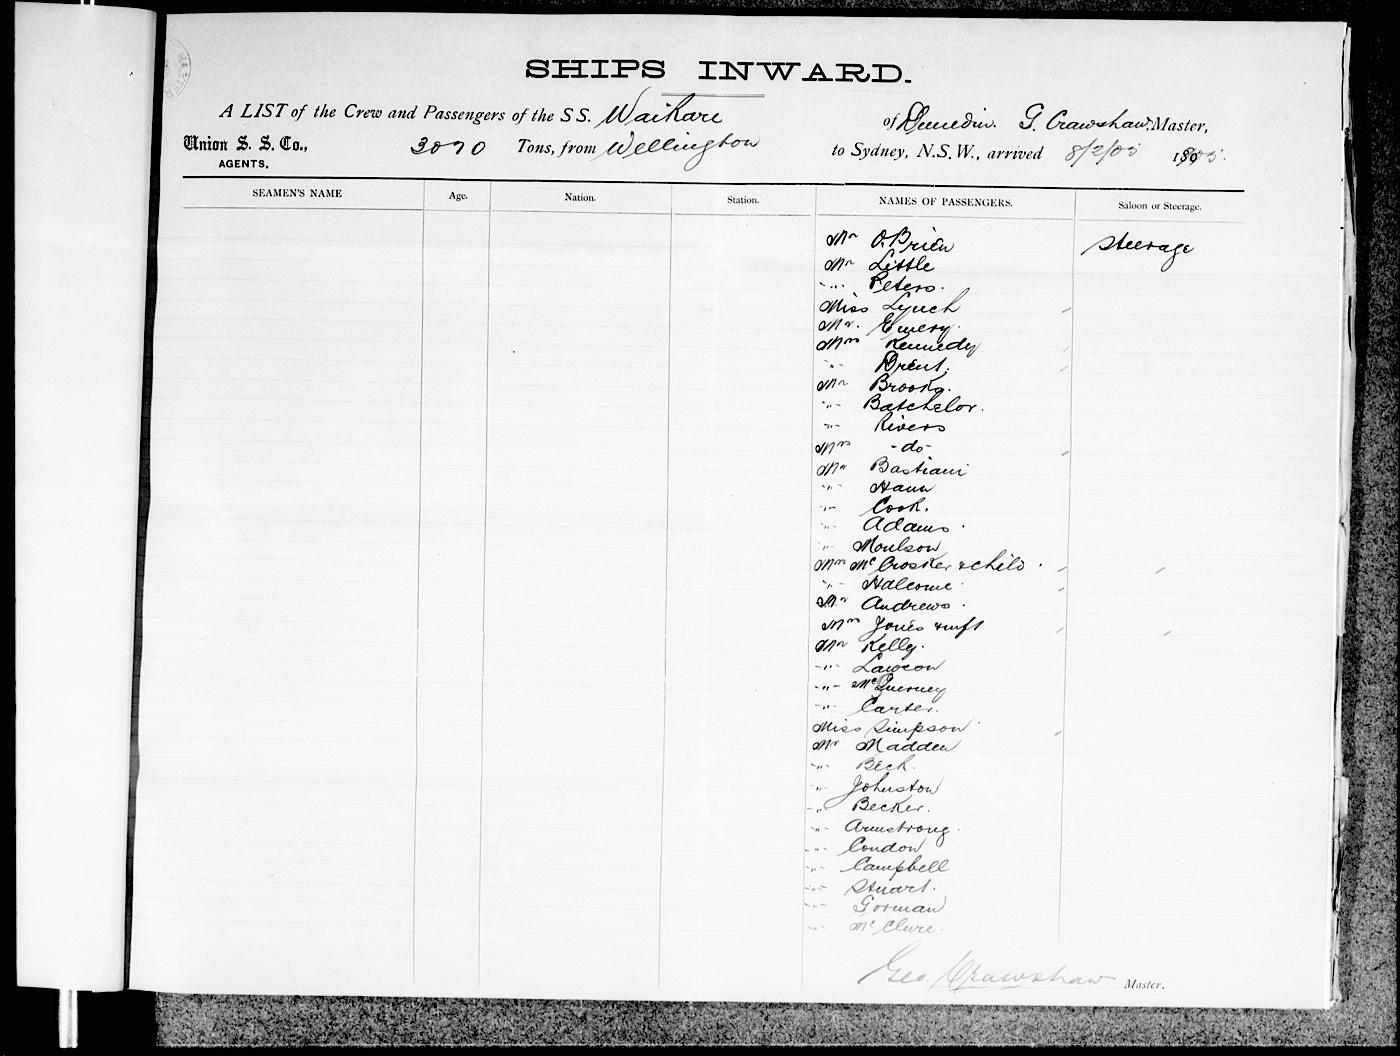 SHIPS INWARD.
A LIST of the Crew and Passengers of the SS. Waikare of Dunedin. G. Crawshaw. Master,
Union S. S. Co., 3070 Tons, from Wellington to Sydney, N.S.W., arrived 8/2/05 1905.
AGENTS.
SEAMEN'S NAME Age. Nation. Station. NAMES OF PASSENGERS. Saloon or Steerage.
Mr O.Brien Steerage
Mr Little
-"- Peters.
Miss Lynch
Mr. Emery.
Mrs Kennedy
-"- Brent.
Mr Brooks.
-"- Batchelor.
-"- Rivers
Mrs -do-
Mr Bastiani
-"- Hann
-"- Cook.
-"- Adams.
-"- Moulson
Mrs McCrosker & child.
-"- Halcome.
Mr Andrews.
Mrs Jones & inft
Mr Kelly.
-"- Lawson
-"- McGuerney
-"- Carter.
Miss Simpson
Mr Madden
-"- Beck.
-"- Johnston
-"- Becker.
-"- Armstrong.
-"- Condon
-"- Campbell
-"- Stuart.
-"- Gorman
-"- McClure.
Geo. Crawshaw Master.